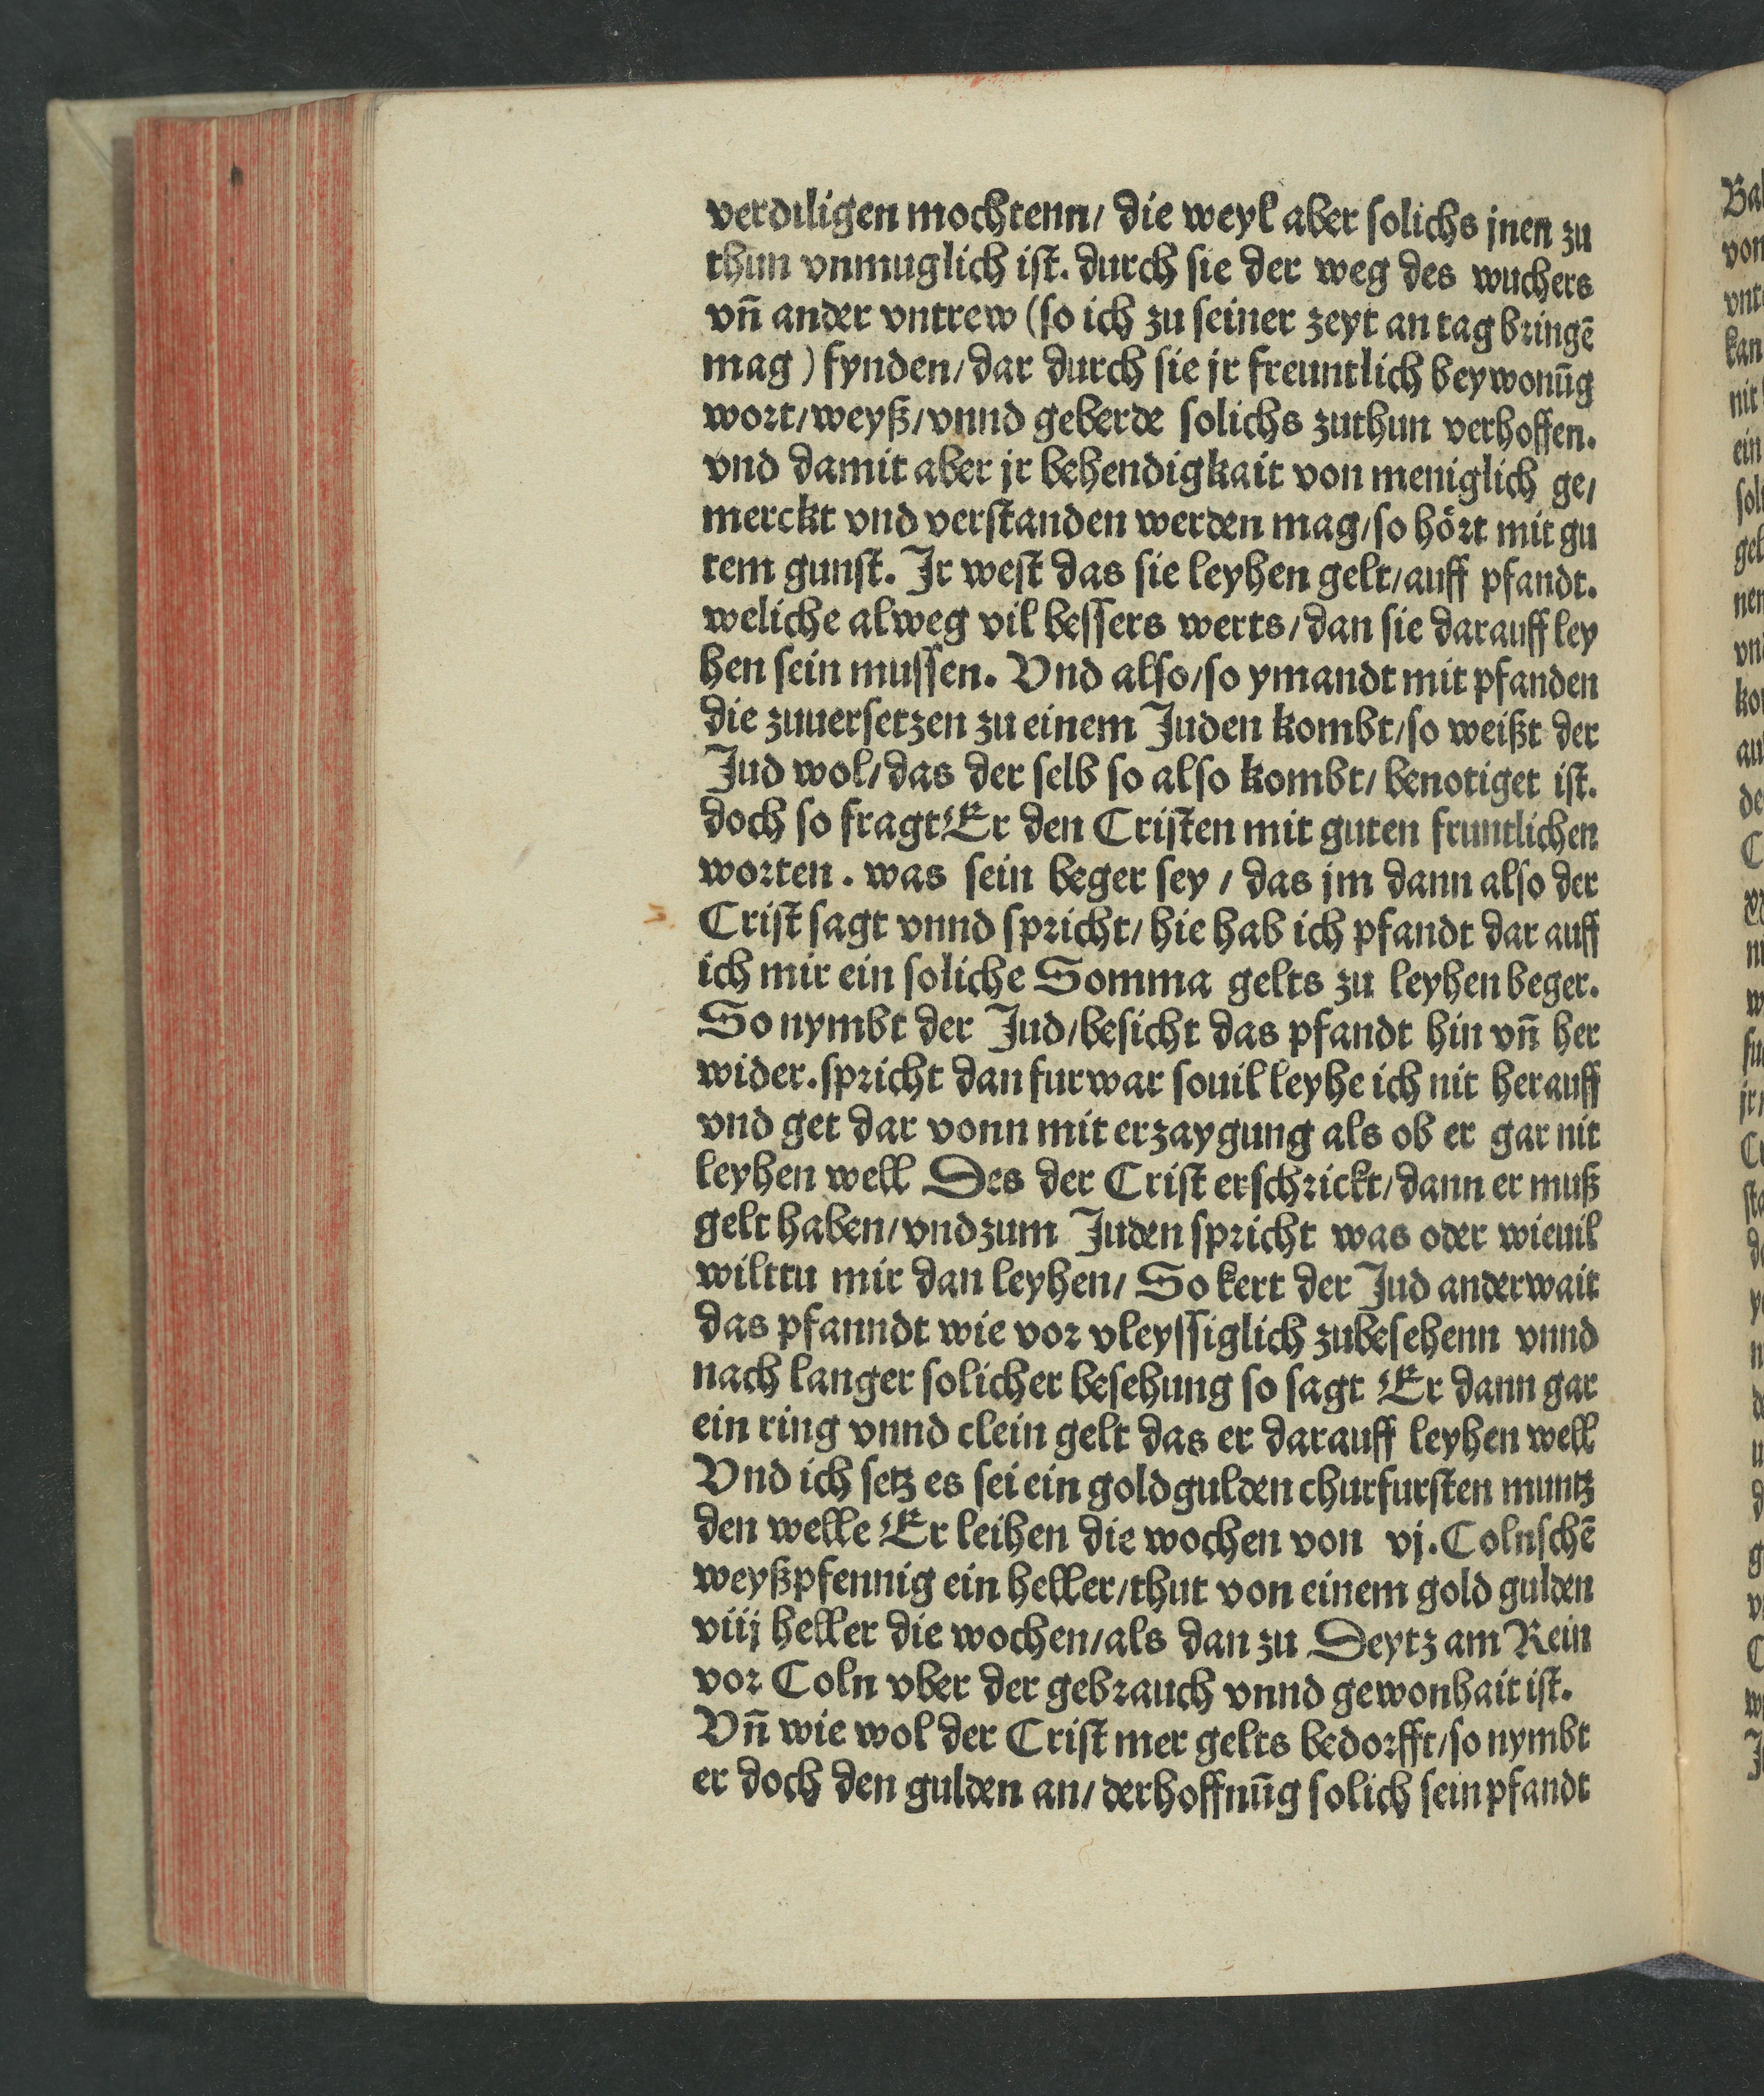 verdiligen mochtenn/ die weyl aber solichs jnen zu
thun vnmuglich ist. durch sie der weg des wuchers
vn̄ ander vntrew (so ich zu seiner zeyt an tag bringē
mag) fynden/dar durch sie jr freuntlich beywonūg
wort/weyß/vnnd geberde solichs zuthun verhoffen.
vnd damit aber jr behendigkait von meniglich ge/
merckt vnd verstanden werden mag/so hört mit gu
tem gunst. Jr west das sie leyhen gelt/auff pfandt.
weliche alweg vil bessers werts/dan sie darauff ley
hen sein mussen. Vnd also/so ymandt mit pfanden
die zuuersetzen zu einem Juden kombt/so weißt der
Jud wol/das der selb so also kombt/ benotiget ist.
doch so fragt Er den Cristen mit guten fruntlichen
worten. was sein beger sey / das jm dann also der
Crist sagt vnnd spricht/ hie hab ich pfandt dar auff
ich mir ein soliche Somma gelts zu leyhen beger.
So nymbt der Jud/besicht das pfandt hin vn̄ her
wider.spricht dan furwar souil leyhe ich nit herauff
vnd get dar vonn mit erzaygung als ob er gar nit
leyhen well Des der Crist erschrickt/dann er muß
gelt haben/vnd zum Juden spricht was oder wieuil
wilttu mir dan leyhen/ So kert der Jud anderwait
das pfanndt wie vor vleyssiglich zubesehenn vnnd
nach langer solicher besehung so sagt Er dann gar
ein ring vnnd clein gelt das er darauff leyhen well
Vnd ich setz es sei ein goldgulden churfursten muntz
den welle Er leihen die wochen von vj.Colnschē
weyßpfennig ein heller/thut von einem gold gulden
viij heller die wochen/als dan zu Deytz am Rein
vor Coln vber der gebrauch vnnd gewonhait ist.
Vn̄ wie wol der Crist mer gelts bedorfft/so nymbt
er doch den gulden an/ derhoffnūg solich sein pfandt